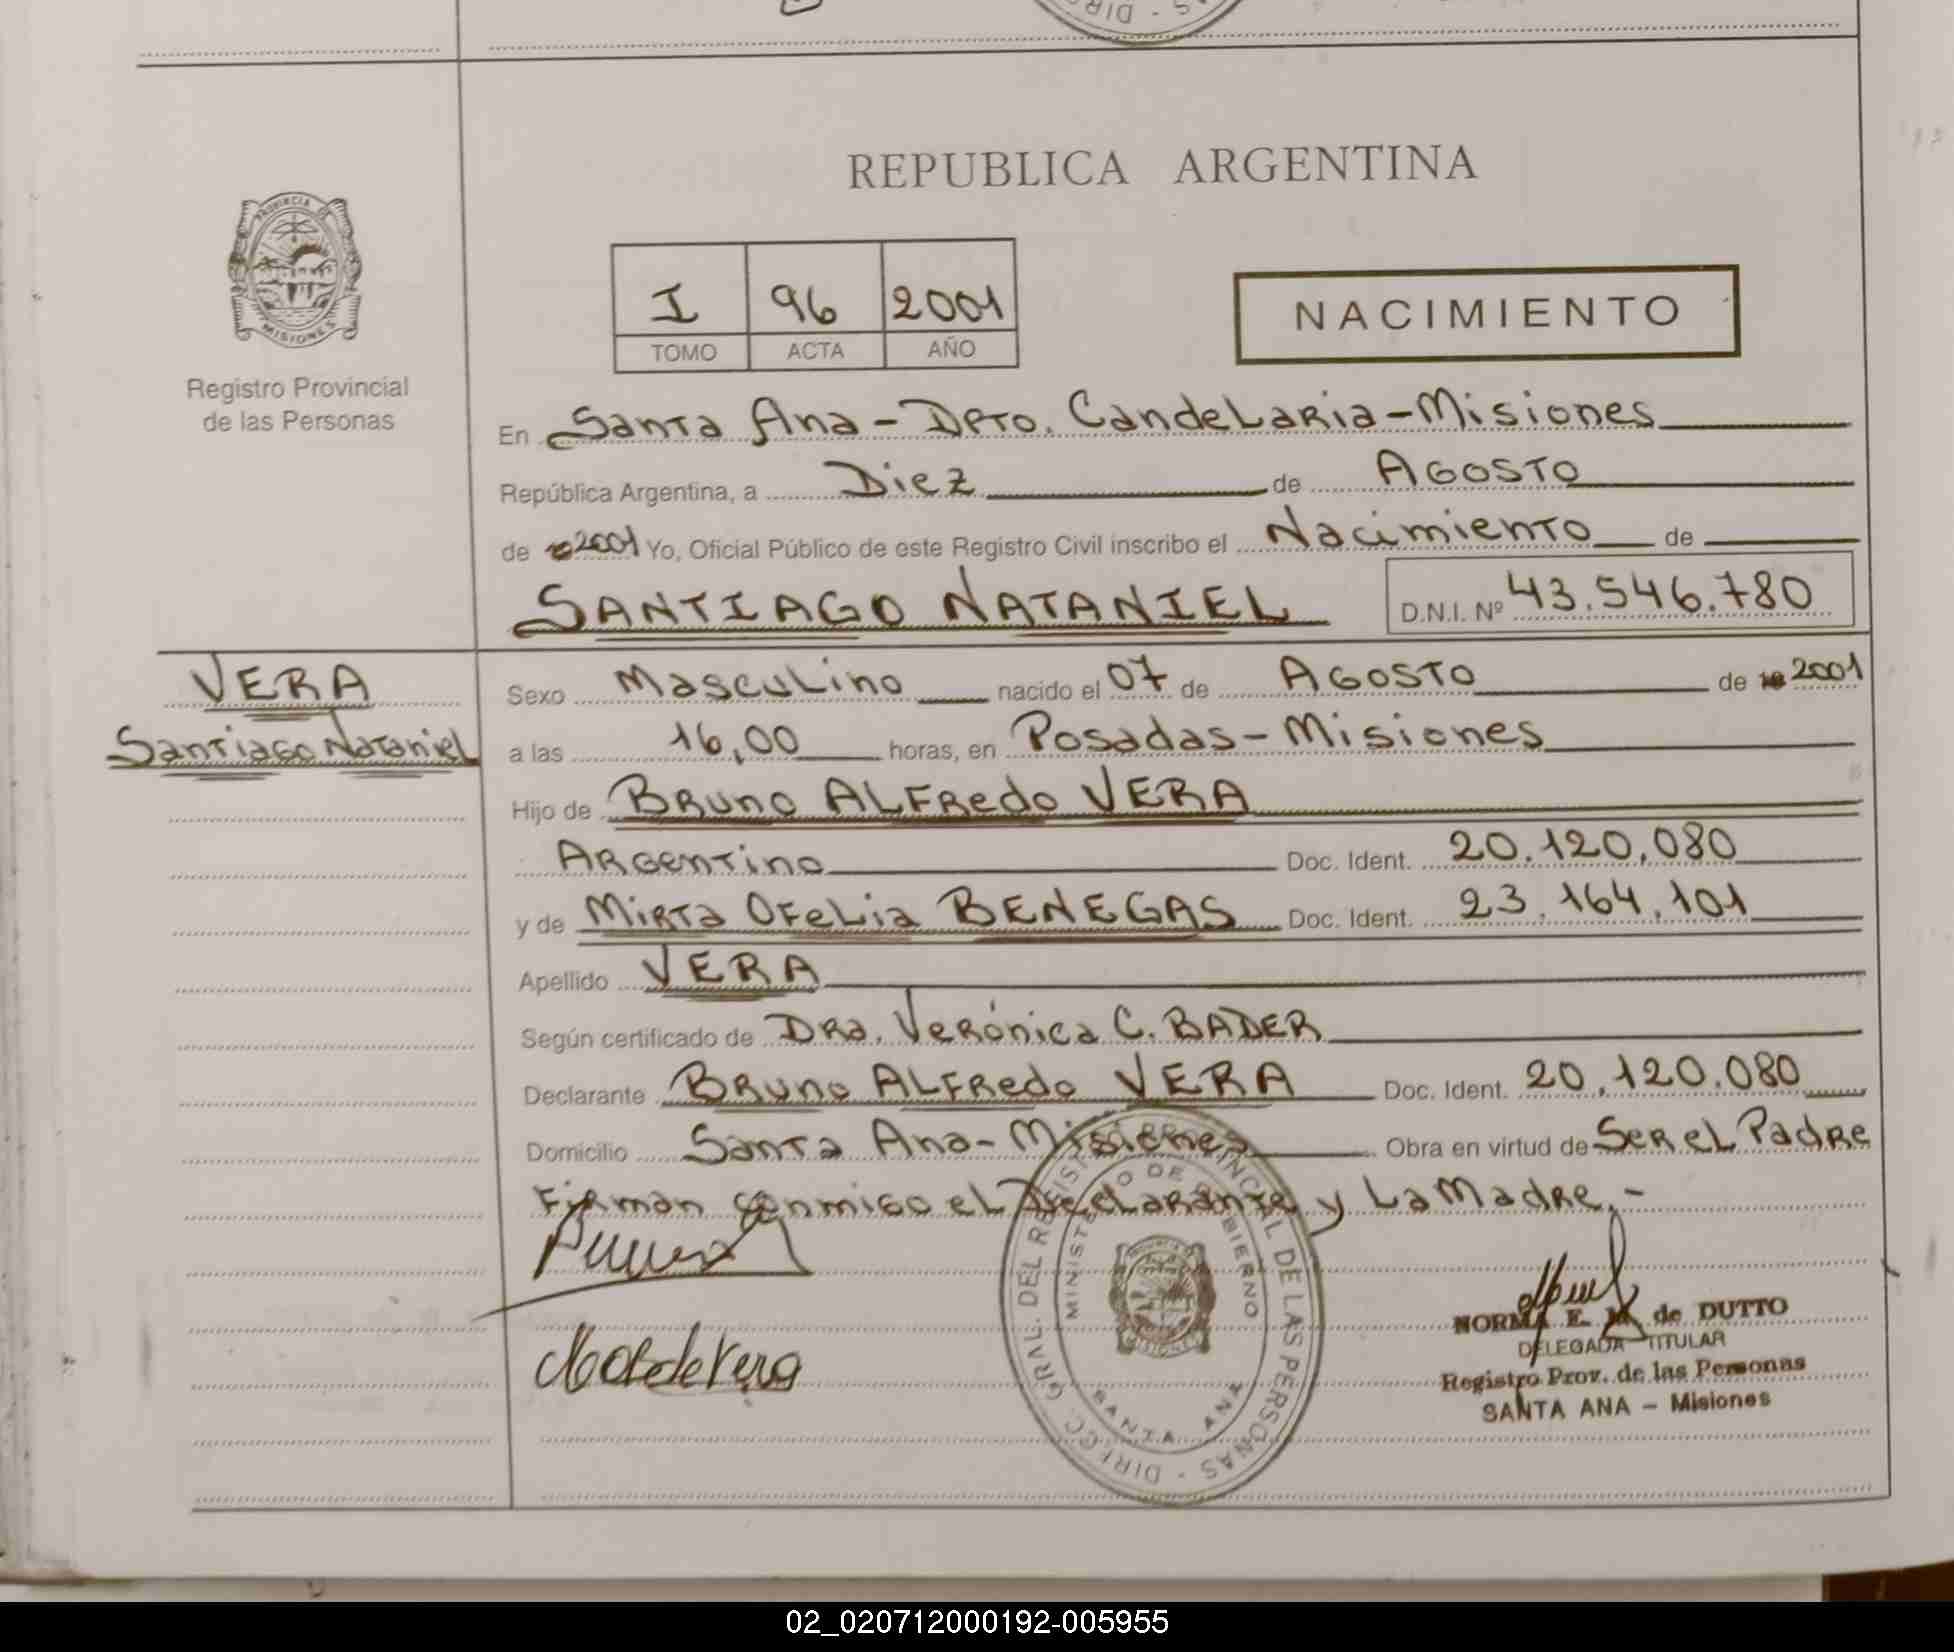 REPUBLICA ARGENTINA
PROVINCIA DE
MISIONES
Registro Provincial
de las Personas
I 96 2001
TOMO ACTA AÑO
NACIMIENTO
En Santa Ana - Dpto. Candelaria - Misiones
República Argentina, a Diez de Agosto
de 2001 Yo, Oficial Público de este Registro Civil inscribo el Nacimiento de
SANTIAGO NATANIEL D.N.I. Nº 43.546.780
VERA
Santiago Nataniel
Sexo Masculino nacido el 07 de Agosto de 2001
a las 16,00 horas, en Posadas - Misiones
Hijo de Bruno Alfredo VERA
Argentino Doc. Ident. 20.120.080
y de Mirta Ofelia BENEGAS Doc. Ident. 23.164.101
Apellido VERA
Según certificado de Dra. Verónica C. BADER
Declarante Bruno Alfredo VERA Doc. Ident. 20.120.080
Domicilio Santa Ana - Misiones Obra en virtud de Ser el Padre
Firman conmigo el Declarante y La Madre.-
DIRECC. GRAL. DEL REGISTRO PROVINCIAL DE LAS PERSONAS -
MINISTERIO DE GOBIERNO
SANTA ANA
NORMA E. M. de DUTTO
DELEGADA TITULAR
Registro Prov. de las Personas
SANTA ANA - Misiones
02_020712000192-005955